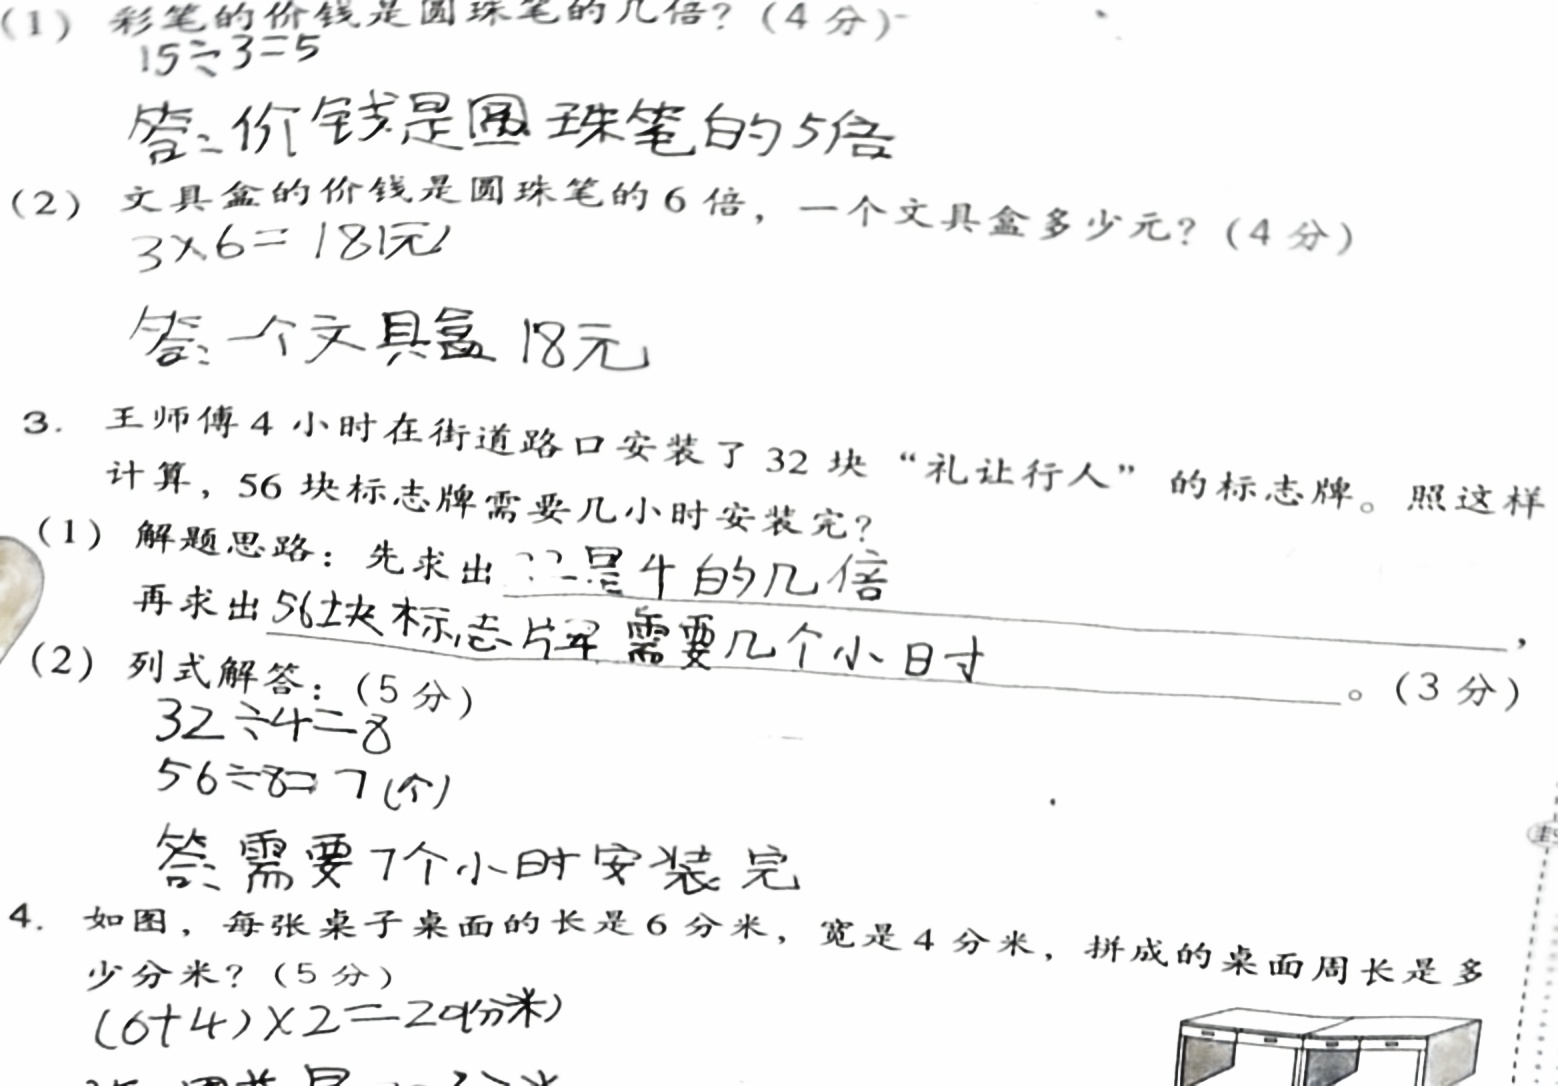 (1) 彩笔的价钱是圆珠笔的几倍？(4 分)
15÷3=5
答：价钱是圆珠笔的5倍
(2) 文具盒的价钱是圆珠笔的 6 倍，一个文具盒多少元？(4 分)
3×6=18(元)
答：一个文具盒 18元
3. 王师傅 4 小时在街道路口安装了 32 块“礼让行人”的标志牌。照这样
计算，56 块标志牌需要几小时安装完？
(1) 解题思路：先求出 32是4的几倍，
再求出 56块标志牌需要几个小时。(3 分)
(2) 列式解答：(5 分)
32÷4=8
56÷8=7(个)
答：需要7个小时安装完
4. 如图，每张桌子桌面的长是 6 分米，宽是 4 分米，拼成的桌面周长是多
少分米？(5 分)
(6+4)×2=20(分米)